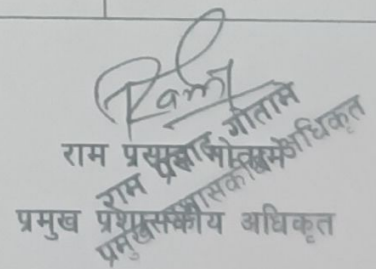 Ram
राम प्रसाद गौतम
प्रमुख प्रशासकीय अधिकृत
राम प्रसाद गौतम
प्रमुख प्रशासकीय अधिकृत